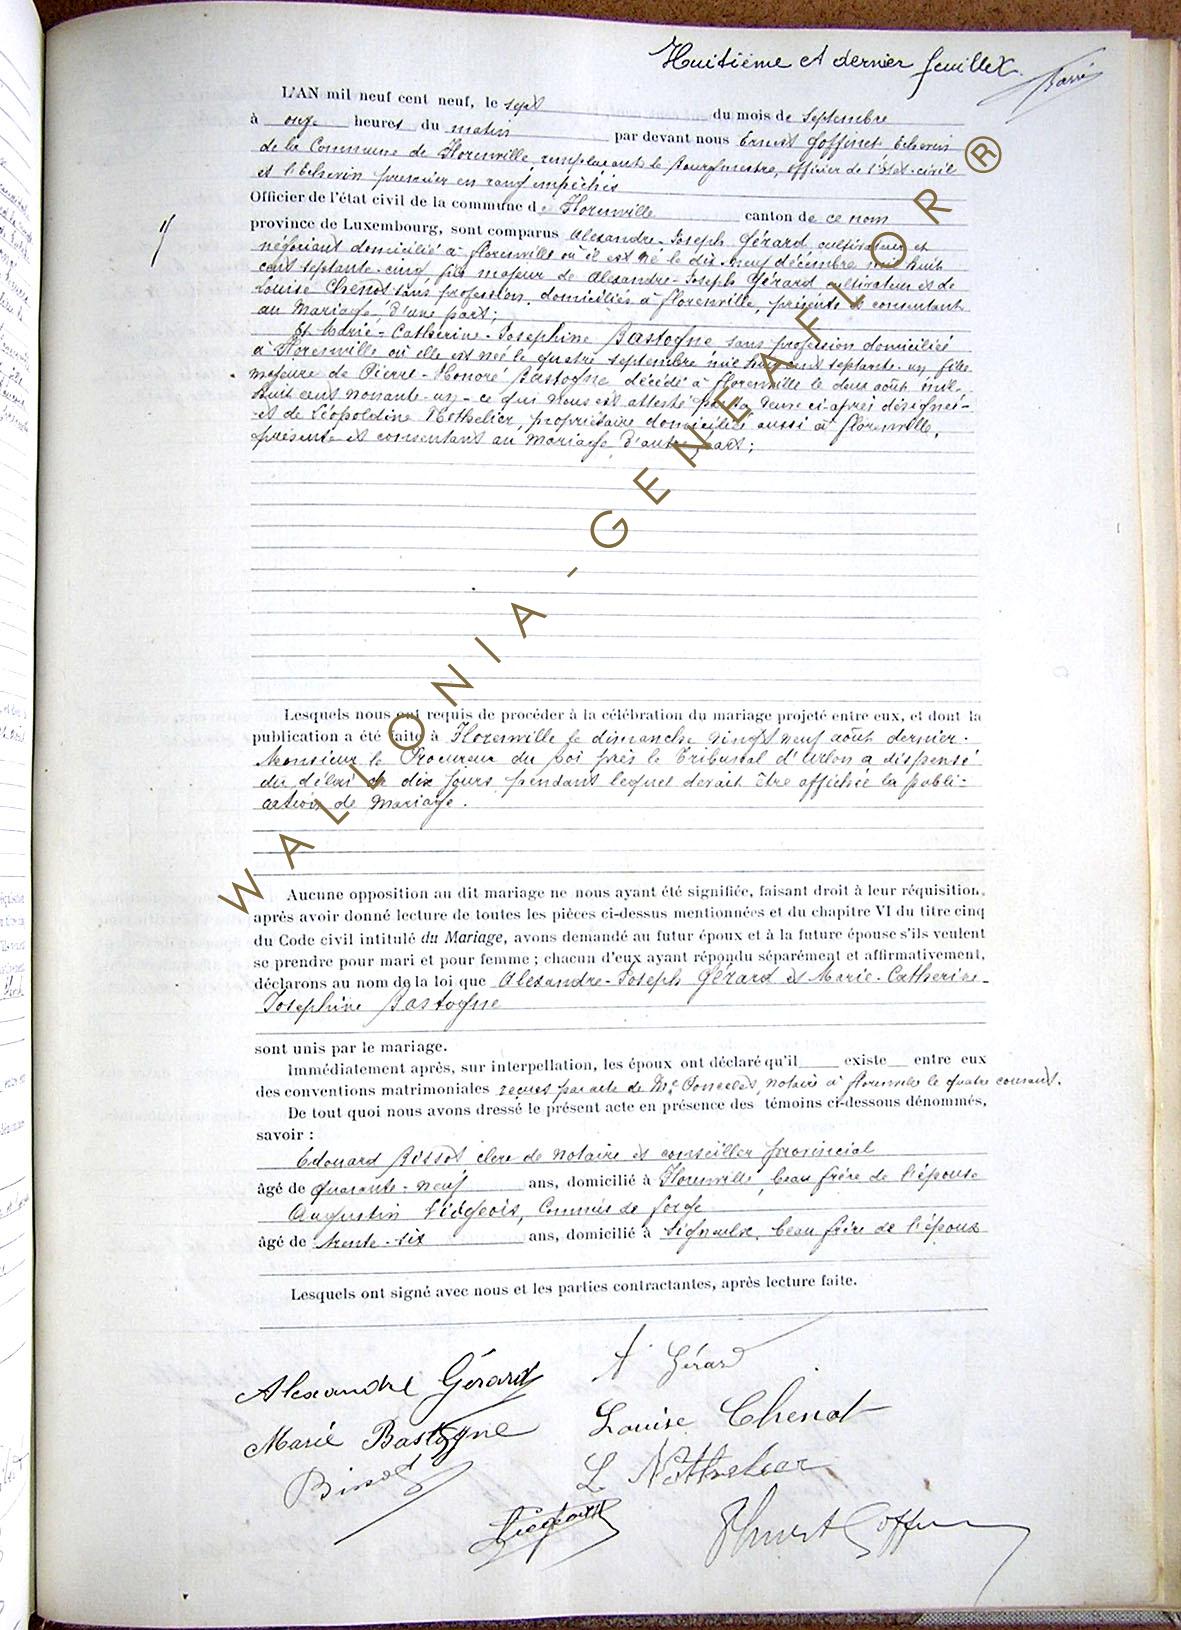 Huitième et dernier feuillet
L'AN mil neuf cent neuf, le sept du mois de septembre
à onze heures du matin par devant nous Ernest Goffinet Echevin
de la Commune de Florenville remplaçant le Bourgmestre, officier de l'état-civil
et l'Echevin premier en rang empêchés
Officier de l'état civil de la commune de Florenville canton de ce nom
province de Luxembourg, sont comparus Alexandre-Joseph Gérard cultivateur et
négociant domicilié à Florenville où il est né le dix-neuf décembre mil huit
cent septante-cinq fils majeur de Alexandre-Joseph Gérard cultivateur et de
Louise Chenot sans profession, domiciliés à Florenville, présents et consentant
au Mariage, d'une part;
Et Marie-Catherine-Josephine Bastogne sans profession domiciliée
à Florenville où elle est née le quatre septembre mil huit cent septante-un fille
majeure de Pierre-Honoré Bastogne décédé à Florenville le deux août mil
huit cent nonante-un - ce qui nous est attesté par la veuve ci-après désignée -
et de Léopoldine Nothelier, propriétaire domiciliée aussi à Florenville,
présente et consentant au Mariage, d'autre part;
Lesquels nous ont requis de procéder à la célébration du mariage projeté entre eux, et dont la
publication a été faite à Florenville le dimanche vingt neuf août dernier.
Monsieur le Procureur du roi près le Tribunal d'Arlon a dispensé
du délai de dix jours pendant lequel devait être affichée la publi-
cation de Mariage.
Aucune opposition au dit mariage ne nous ayant été signifiée, faisant droit à leur réquisition,
après avoir donné lecture de toutes les pièces ci-dessus mentionnées et du chapitre VI du titre cinq
du Code civil intitulé du Mariage, avons demandé au futur époux et à la future épouse s'ils veulent
se prendre pour mari et pour femme ; chacun d'eux ayant répondu séparément et affirmativement,
déclarons au nom de la loi que Alexandre-Joseph Gérard et Marie-Catherine-
Josephine Bastogne
sont unis par le mariage.
Immédiatement après, sur interpellation, les époux ont déclaré qu'il existe entre eux
des conventions matrimoniales reçues par acte de Me notaire à Florenville le quatre courant.
De tout quoi nous avons dressé le présent acte en présence des témoins ci-dessous dénommés,
savoir :
Edouard Bissot clerc de notaire et conseiller provincial
âgé de quarante-neuf ans, domicilié à Florenville, beau frère de l'épouse
Augustin Liégeois, Commis de forge
âgé de trente-six ans, domicilié à Signeulx, beau frère de l'époux
Lesquels ont signé avec nous et les parties contractantes, après lecture faite.
A Gérard
Alexandre Gérard
Louise Chenot
Marie Bastogne
L Nothelier
Bissot
Liégeois
Ernest Goffinet
WALLONIA-GENEAFLOR®